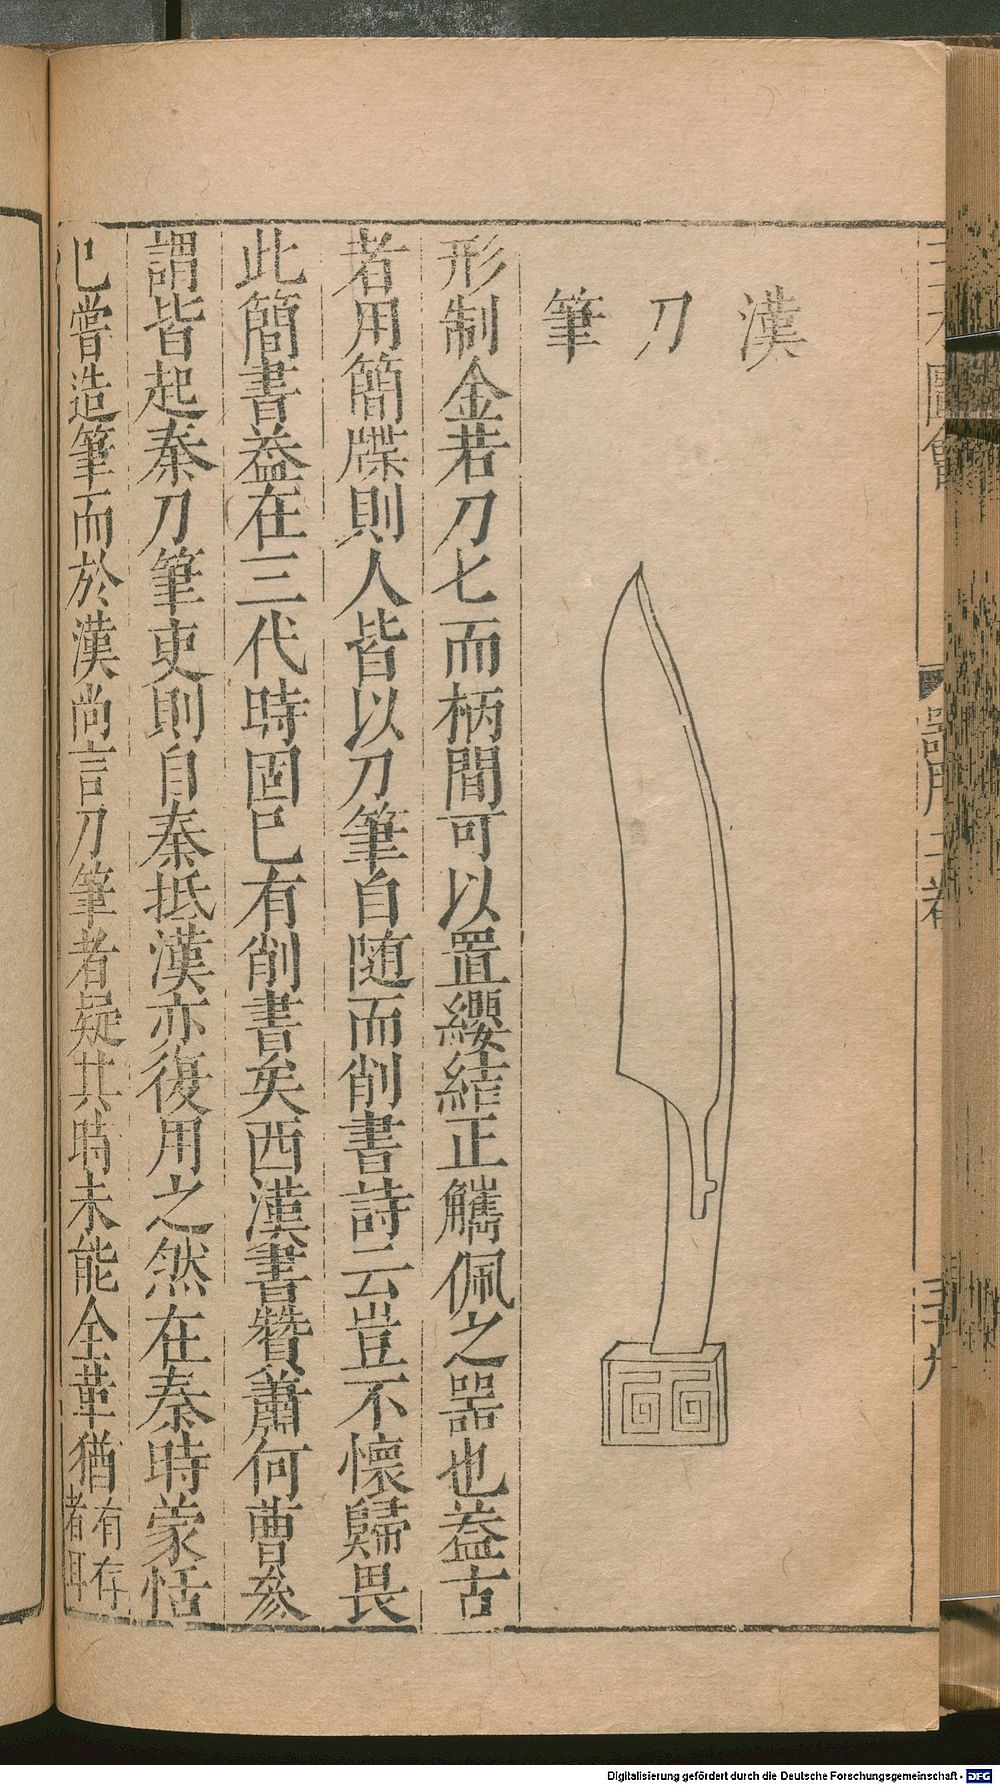 漢刀筆
形制金若刀匕而柄間可以置纓結正觿佩之器也葢古
者用簡牒則人皆以刀筆自随而削書詩云豈不懷歸畏
此簡書葢在三代時固已有削書矣西漢書贊蕭何曹叅
謂皆起秦刀筆吏則自秦抵漢亦復用之然在秦時蒙恬
已嘗造筆而於漢尚言刀筆者疑其時未能全革猶有存者耳
圖會
器用
Digitalisierung gefördert durch die Deutsche Forschungsgemeinschaft - DFG